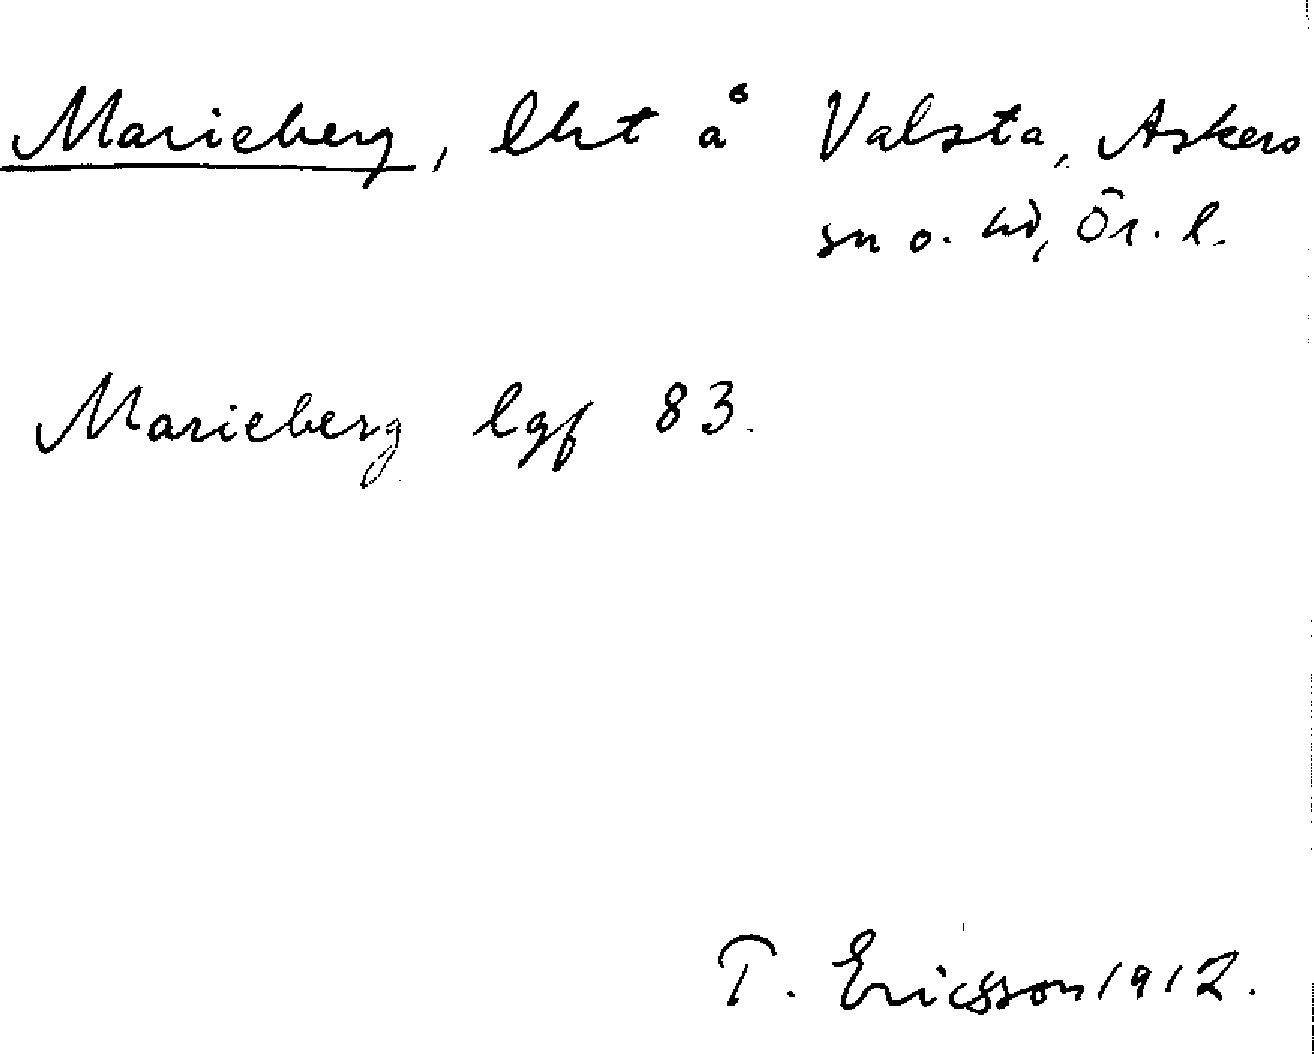 Marieberg, lht å Valsta, Askers
sn o. hd, Ör. l.
Marieberg lgf 83.
T. Ericsson 1912.